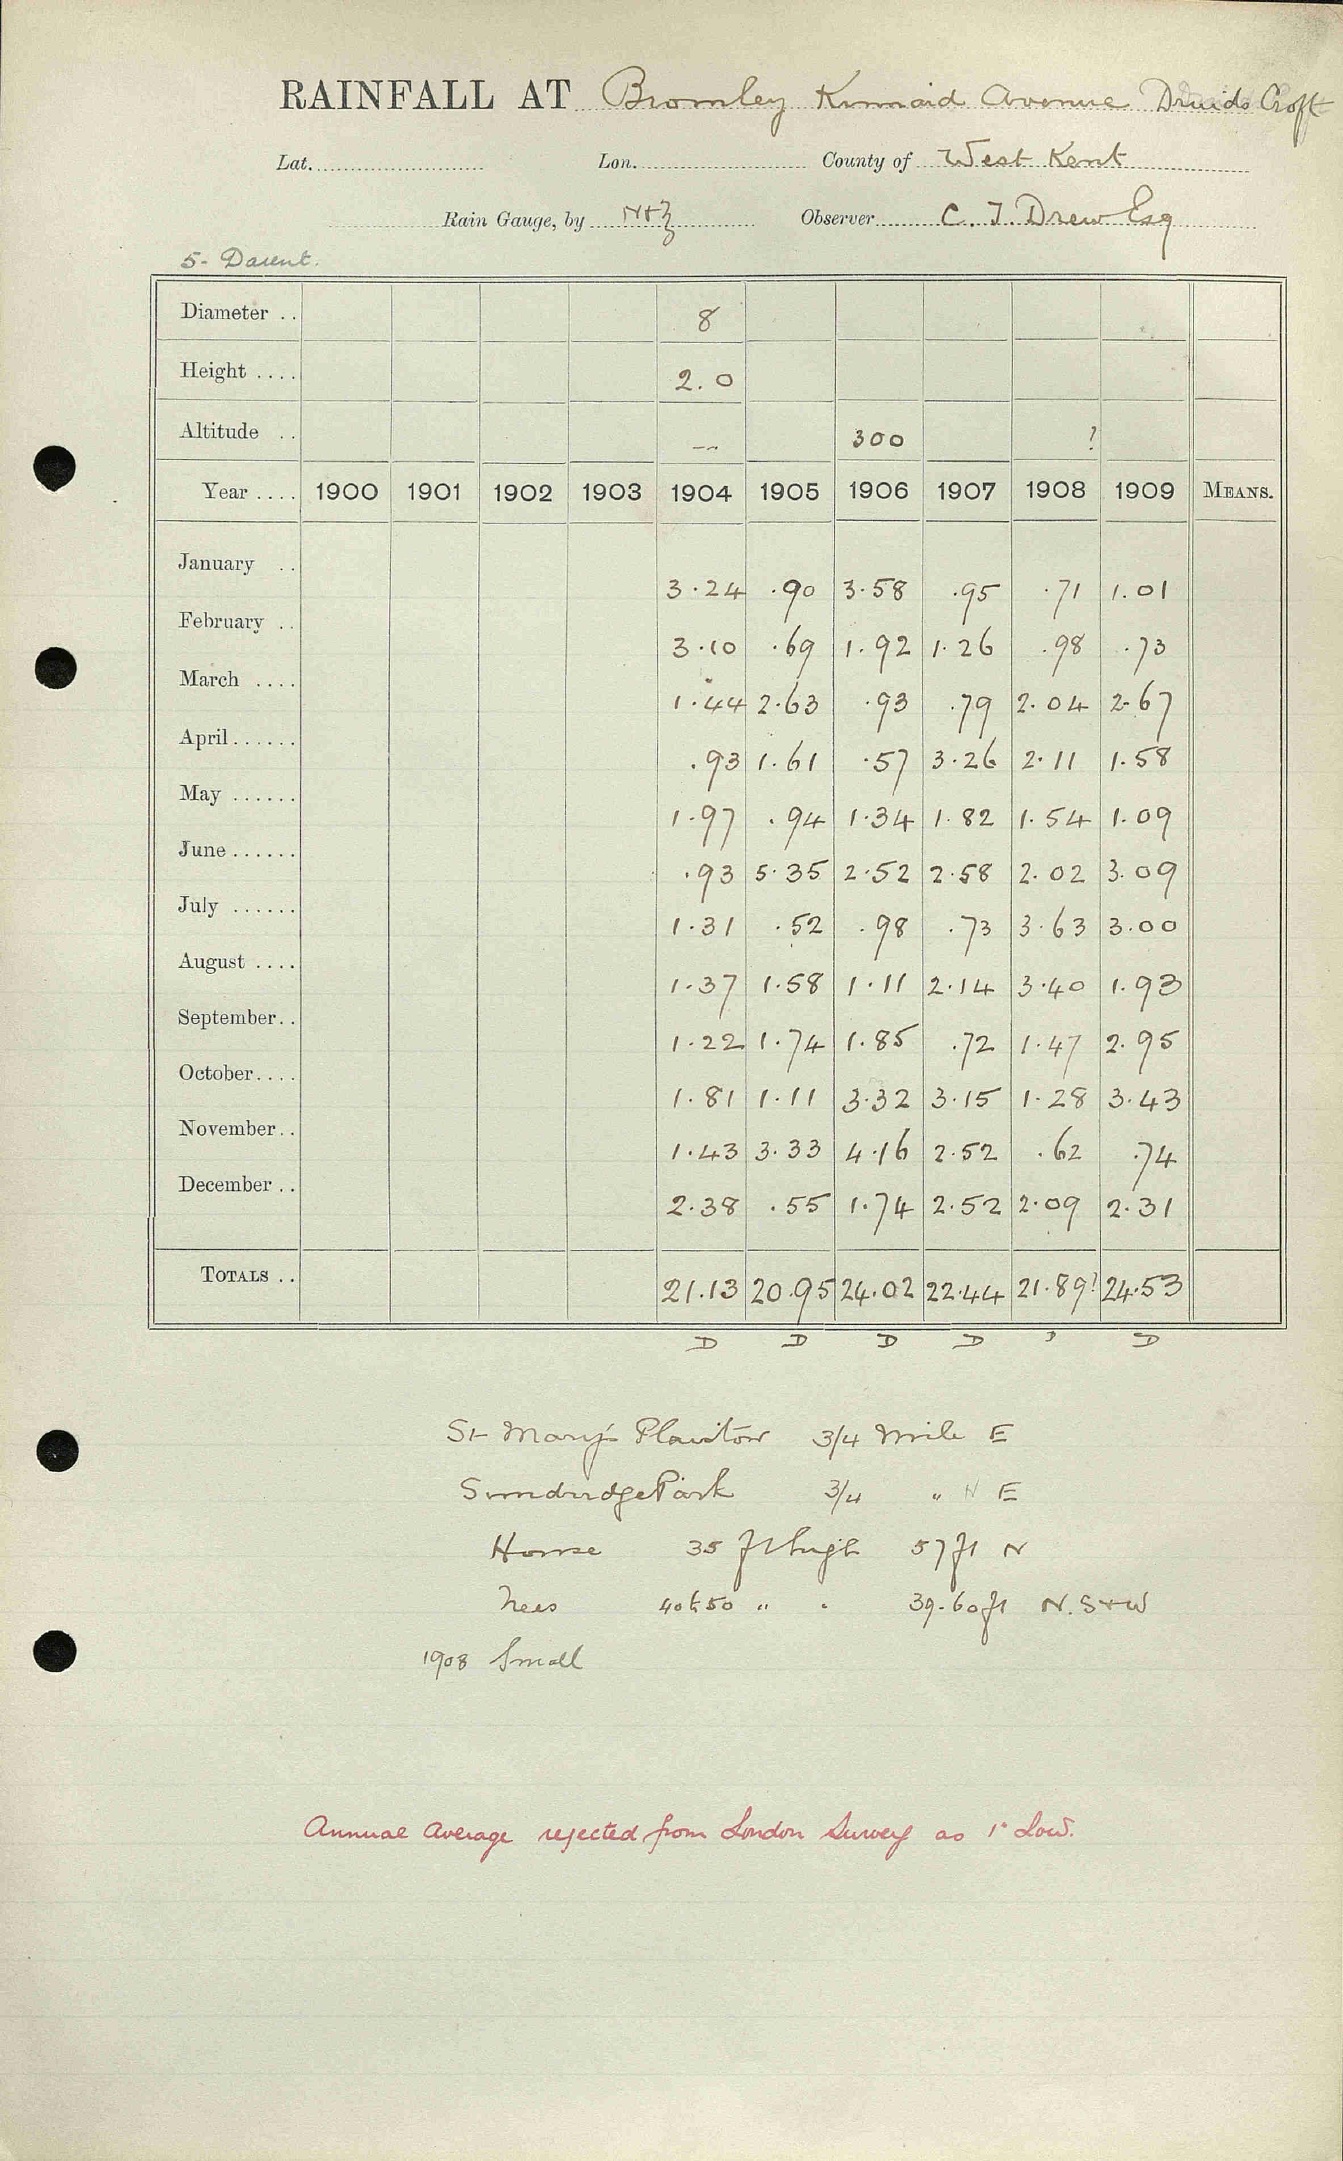 RAINFALL AT Bromley Kinnaird Avenue Druids Croft
Lat. Lon. County of West Kent
Rain Gauge, by N+Z Observer C. J. Drew Esq
5 - Darent.
Diameter .. 8
Height .... 2.0
Altitude .. — 300 ?
Year .... 1900 1901 1902 1903 1904 1905 1906 1907 1908 1909 MEANS.
January .. 3.24 .90 3.58 .95 .71 1.01
February .. 3.10 .69 1.92 1.26 .98 .73
March .... 1.44 2.63 .93 .79 2.04 2.67
April ...... .93 1.61 .57 3.26 2.11 1.58
May ...... 1.97 .94 1.34 1.82 1.54 1.09
June ...... .93 5.35 2.52 2.58 2.02 3.09
July ...... 1.31 .52 .98 .73 3.63 3.00
August .... 1.37 1.58 1.11 2.14 3.40 1.93
September.. 1.22 1.74 1.85 .72 1.47 2.95
October.... 1.81 1.11 3.32 3.15 1.28 3.43
November.. 1.43 3.33 4.16 2.52 .62 .74
December .. 2.38 .55 1.74 2.52 2.09 2.31
TOTALS .. 21.13 20.95 24.02 22.44 21.89? 24.53
D D D D ? D
St Mary's Plaistow 3/4 Mile E
Sundridge Park 3/4 " N E
House 35 ft high 57 ft N
Trees 40 to 50 " " 39-60 ft N. S + W
1908 Small
Annual Average rejected from London Survey as 1" low.